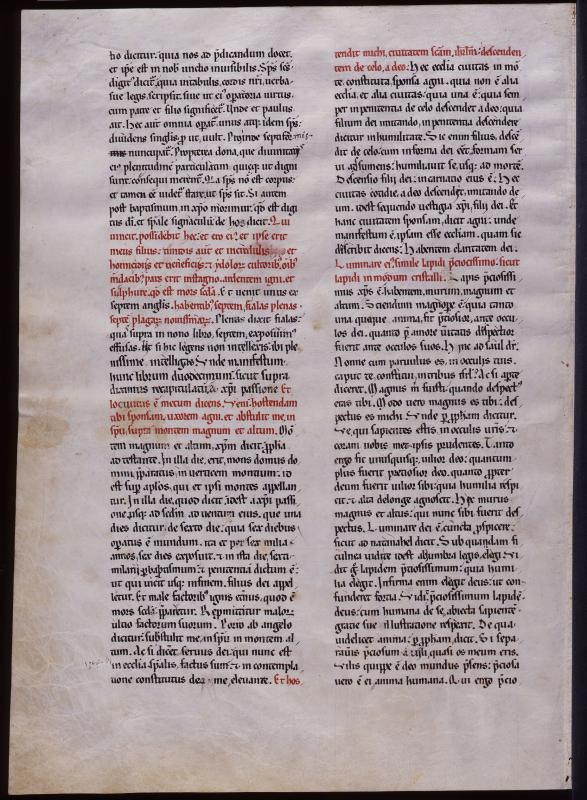 ho dicitur. quia nos ad p̄dicandum docet.
et ip̄e est in nob̄ unctio inuisibilis. Sp̄s sc̄s
digit' dict̄. quia in tabulis cordis nr̄i. uerba
sue legis scripsit. siue ut ei' op̄atoria uirtus
cum patre et filio significet̄. Unde et paulus
ait. Hec aut̄ omnia op̄at̄ unus atq; idem sp̄s.
diuidens singlis p̄ ut uult. Proinde septiformis
nuncupat̄. Propterea dona, que diuinitatis
ei' plenitudine particulatim quiq; ut digni
sunt. consequi merent̄.
et tamen uidet̄ stare, ut sp̄s sit. Si autem
post baptismum, in xp̄o morimur. qd̄ est digi
tus dī. et sp̄ale signaculū. de hoc dicit. Qui
uincit. possidebit hec. et ero ei'. et ipse erit
meus filius. timidis aut̄ et incredulis et
homicidis et ueneficis. et ydolor̄ cultorib', oīb'
mdacib'. pars erit in stagno ardentem igni. et
sulphure. qd̄ est mors scda. Et uenit unus ex
septem anglis. habentib' septem fialas plenas
septē plagar̄ nouissimar̄. Plenas dixit fialas.
qua supra in nono libro, septem, exposuim'
effusas. Ac si hic legens non intelleris. ibi ple
nissime intelligas. Unde manifestum.
hunc librum duodecimum. sicut supra
diximus recapitulati, a xp̄i passione Et
locutus ē mecum dicens. Veni. hostendam
tibi sponsam, uxorem agni. et abstulit me, in
spū, supra montem magnum et altum. Mō
tem magnum et altum, xp̄m dicit ꝓpha
ad testante. In illa die, erit, mons domus do
mini, p̄paratus, in uertice montium. id
est sup̄ aplos. qui et ipsi montes appellan
tur. In illa die, quod dicit. idest a xp̄i passi
one usq; ad sedm̄ aduentum eius. que una
dies dicitur de sexto die. quia sex diebus
op̄atus ē mundum. ita et per sex milia
annos, sex dies exposuit. et in ista die, sexti
milarii baptismum et penitentia dictum ē.
ut qui uicit usq; in finem. filius dei appel
letur. Et male factorib' ignis et̄nus, quod ē
mors scda p̄paretur. Repmittitur malor̄
ultio factorum suorum. Porro ab angelo
dicitur. substulit me, in spū in montem al
tum. Ac si dicet̄. seruus dei. qui nunc est
in ecclia sp̄alis, factus sum. et in contempla
tione constitutus de me, eleuante. Et hos
tendit michi, ciuitatem scām, ihrlm̄. descenden
tem de celo, a deo. Hec ecclia ciuitas in mō
te constituta sponsa agni. quia non ē alia
ecclia. et alia ciuitas. quia una ē. quia sem
per in penitentia de celo descendet a deo. quia
filium dei imitando, in penitentia descendere
dicitur in humilitate. Sic enim filius, descē
dit de celo. cum in forma dei eet. formam ser
ui adsumens. humiliauit se usq; ad mortē.
Descensio filii dei. incarnatio eius ē. Hec
ciuitas cotidie, a deo descendet, imitando de
um. idest sequendo uestigia xp̄i, filii dei. Et
hanc ciuitatem sponsam, dicit agni. unde
manifestum ē. ipsam esse eccliam. quam sic
discribit dicens. Habentem claritatem dei.
Luminare ei', simile lapidi p̄ciosissimo. sicut
lapidi in modum cristalli. Lapis p̄ciosissi
mus xp̄s ē. habentem, murum, magnum et
altum. Sciendum magnop̄e ē. quia tanto
una queque anima, fit p̄ciosior, ante ocu
los dei. quanto p̄ amore u̅itatis dispectior
fuerit ante oculos suos. Hinc ad saul dr̄.
Nonne cum paruulus es. in oculis tuis.
caput te constitui, in tribus isrl̄. Ac si apte
diceret. Magnus m̄ fuisti. quando despect'
eras tibi. Modo uero magnus es tibi. des
pectus es michi. Unde p̄ ꝓpham dicitur.
Ve. qui sapientes estis, in oculis uris. et
coram uobis met ipsis prudentes. Tanto
ergo fit unusquisq; uilior, deo. quantum
plus fuerit preciosior deo. quanto, ꝓpter
deum fuerit uilior sibi. quia humilia respi
cit. et alta delonge agnoscit. Hec murus
magnus et altus. qui nunc sibi fuerit des
pectus. Luminare dei ē. cuncta p̄spicere.
sicut ad natanahel dicit. Sub quandam fi
culnea uidit te idest a umbra legis, elegi. Vi
dit ḡ lapidem p̄ciosissimum. quia humi
lia elegit. Infirma enim elegit deus. ut con
funderet fortia. Vidi, p̄ciosissimum lapidē
deus. cum humana de se, abiecta sapientē.
gratie sue illustratione respexit. De qua
uidelicet anima. p̄ ꝓpham, dicit. Si sepa
raūis p̄ciosum a uili. quasi os meum eris.
Vilis quippe ē deo mundus p̄sens. p̄ciosa
uero ē ei anima humana. Qui ergo p̄cio